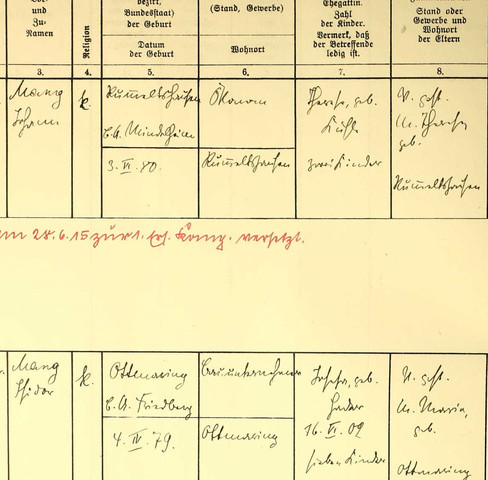 Vor-
und
Zu-
Namen
Religion
bezirk,
Bundesstaat)
der Geburt
Datum
der Geburt
(Stand, Gewerbe)
Wohnort
Ehegattin.
Zahl
der Kinder.
Vermerk, daß
der Betreffende
ledig ist.
Stand oder
Gewerbe und
Wohnort
der Eltern
3. 4. 5. 6. 7. 8.
Mang
Johann
k.
Rummeltshausen
B.A. Mindelheim
3. VI. 80.
Ökonom
Rummeltshausen
Therese, geb.
zwei Kinder
V. gest.
M. Therese,
geb.
Rummeltshausen
am 28.6.15 zur 1. Ers. Komp. versetzt.
Mang
Isidor
k.
Ottmaring
B.A. Friedberg
4. IV. 79.
Bauunternehmer
Ottmaring
Josefa, geb.
16. VI. 02
sieben Kinder
V. gest.
M. Maria,
geb.
Ottmaring